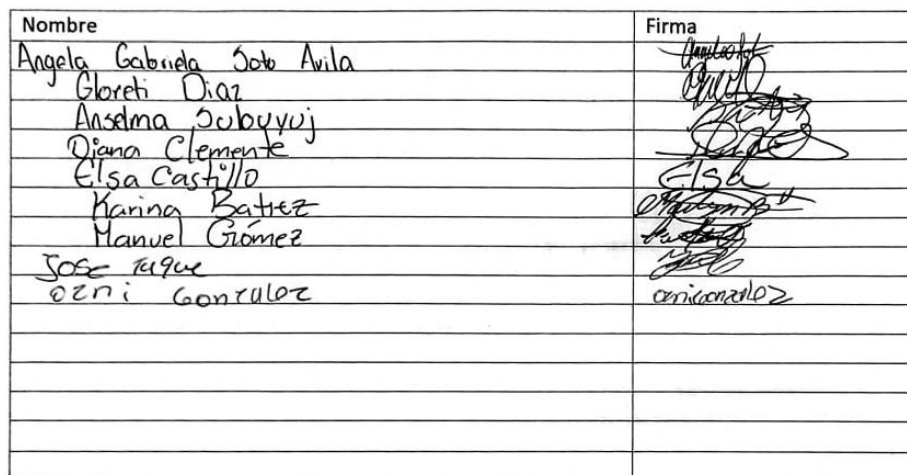 Nombre Firma
Angela Gabriela Soto Avila
Gloreti Diaz
Anselma Subuyuj
Diana Clemente
Elsa Castillo Elsa
Karina Batrez
Manuel Gómez
Jose Tuque
ozni Gonzalez oznigonzalez